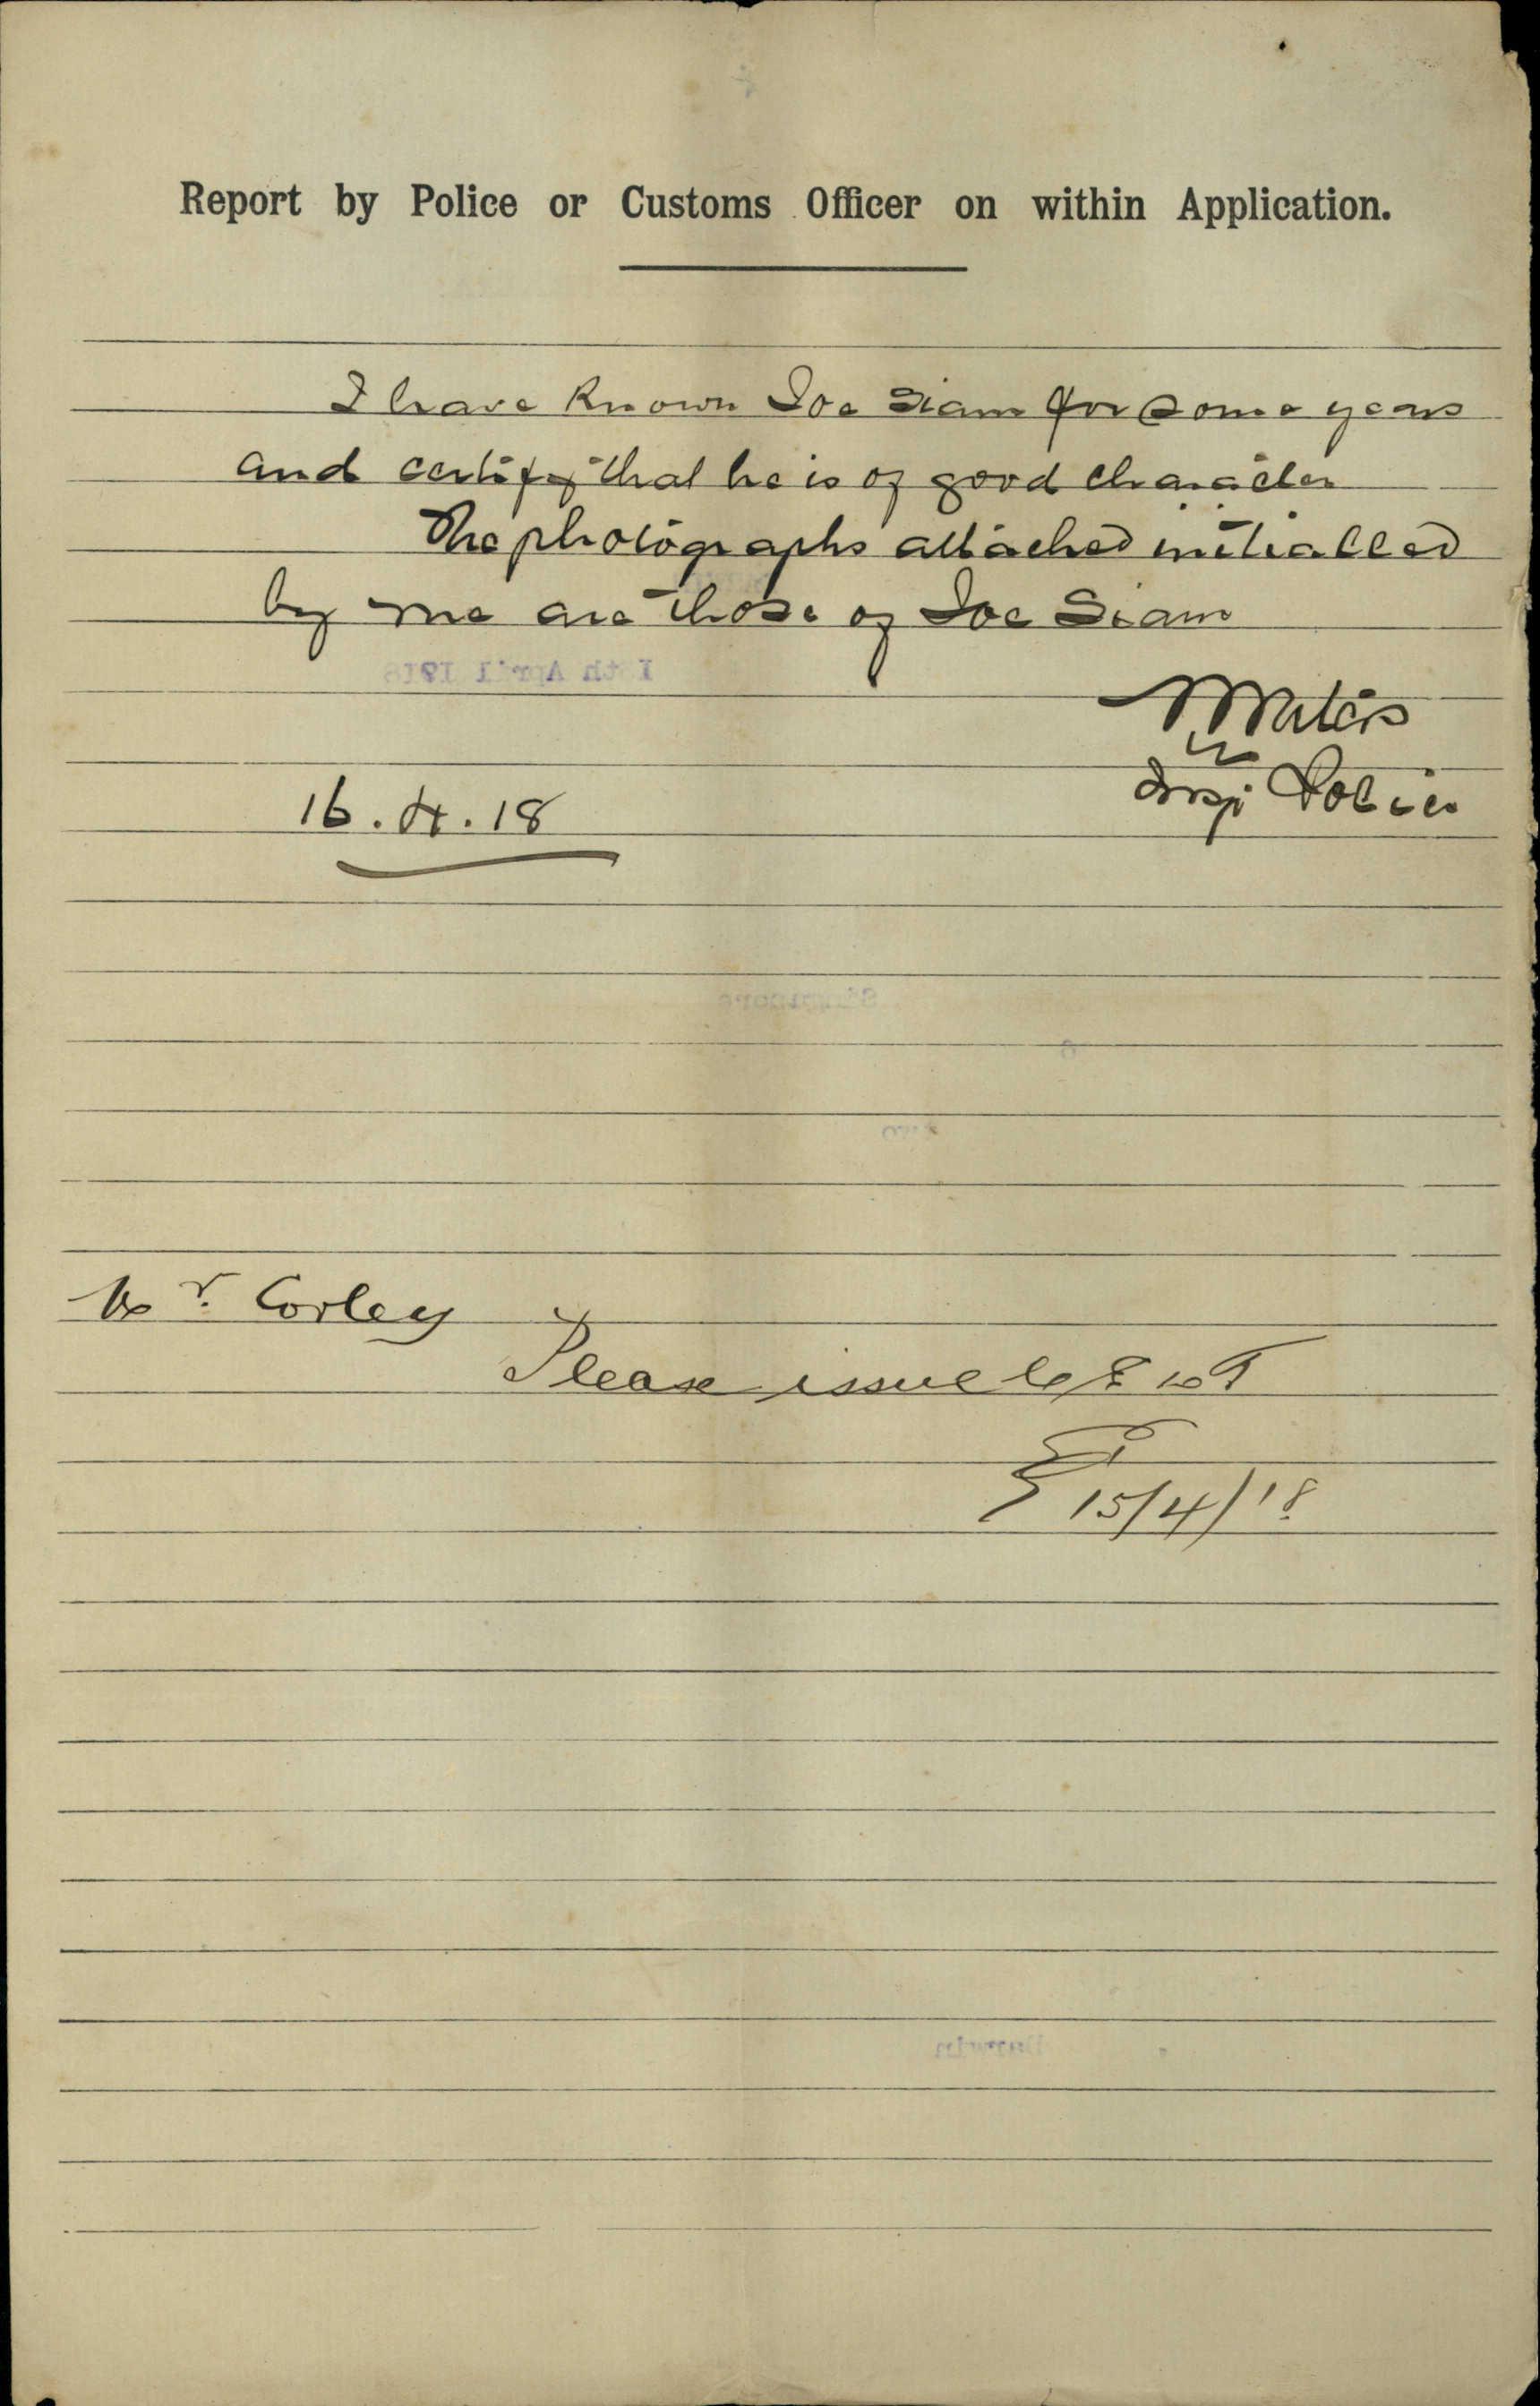 Report by Police or Customs Officer on within Application.
I have known Joe Siam for some years
and certify that he is of good character
The photographs attached initialled
by me are those of Joe Siam
Waters
Insp Police
16.4.18
Mr. Corley
Please issue CEDT
15/4/18